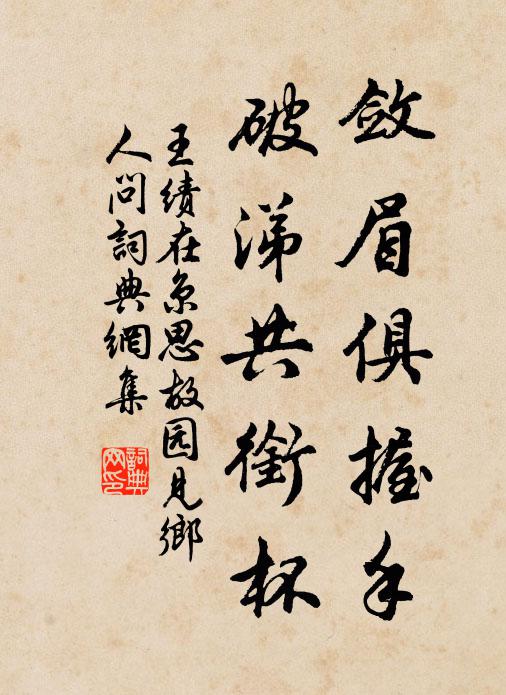 斂眉俱握手
破涕共銜杯
王績在京思故园見鄉
人問詞典網集
詞典
网印